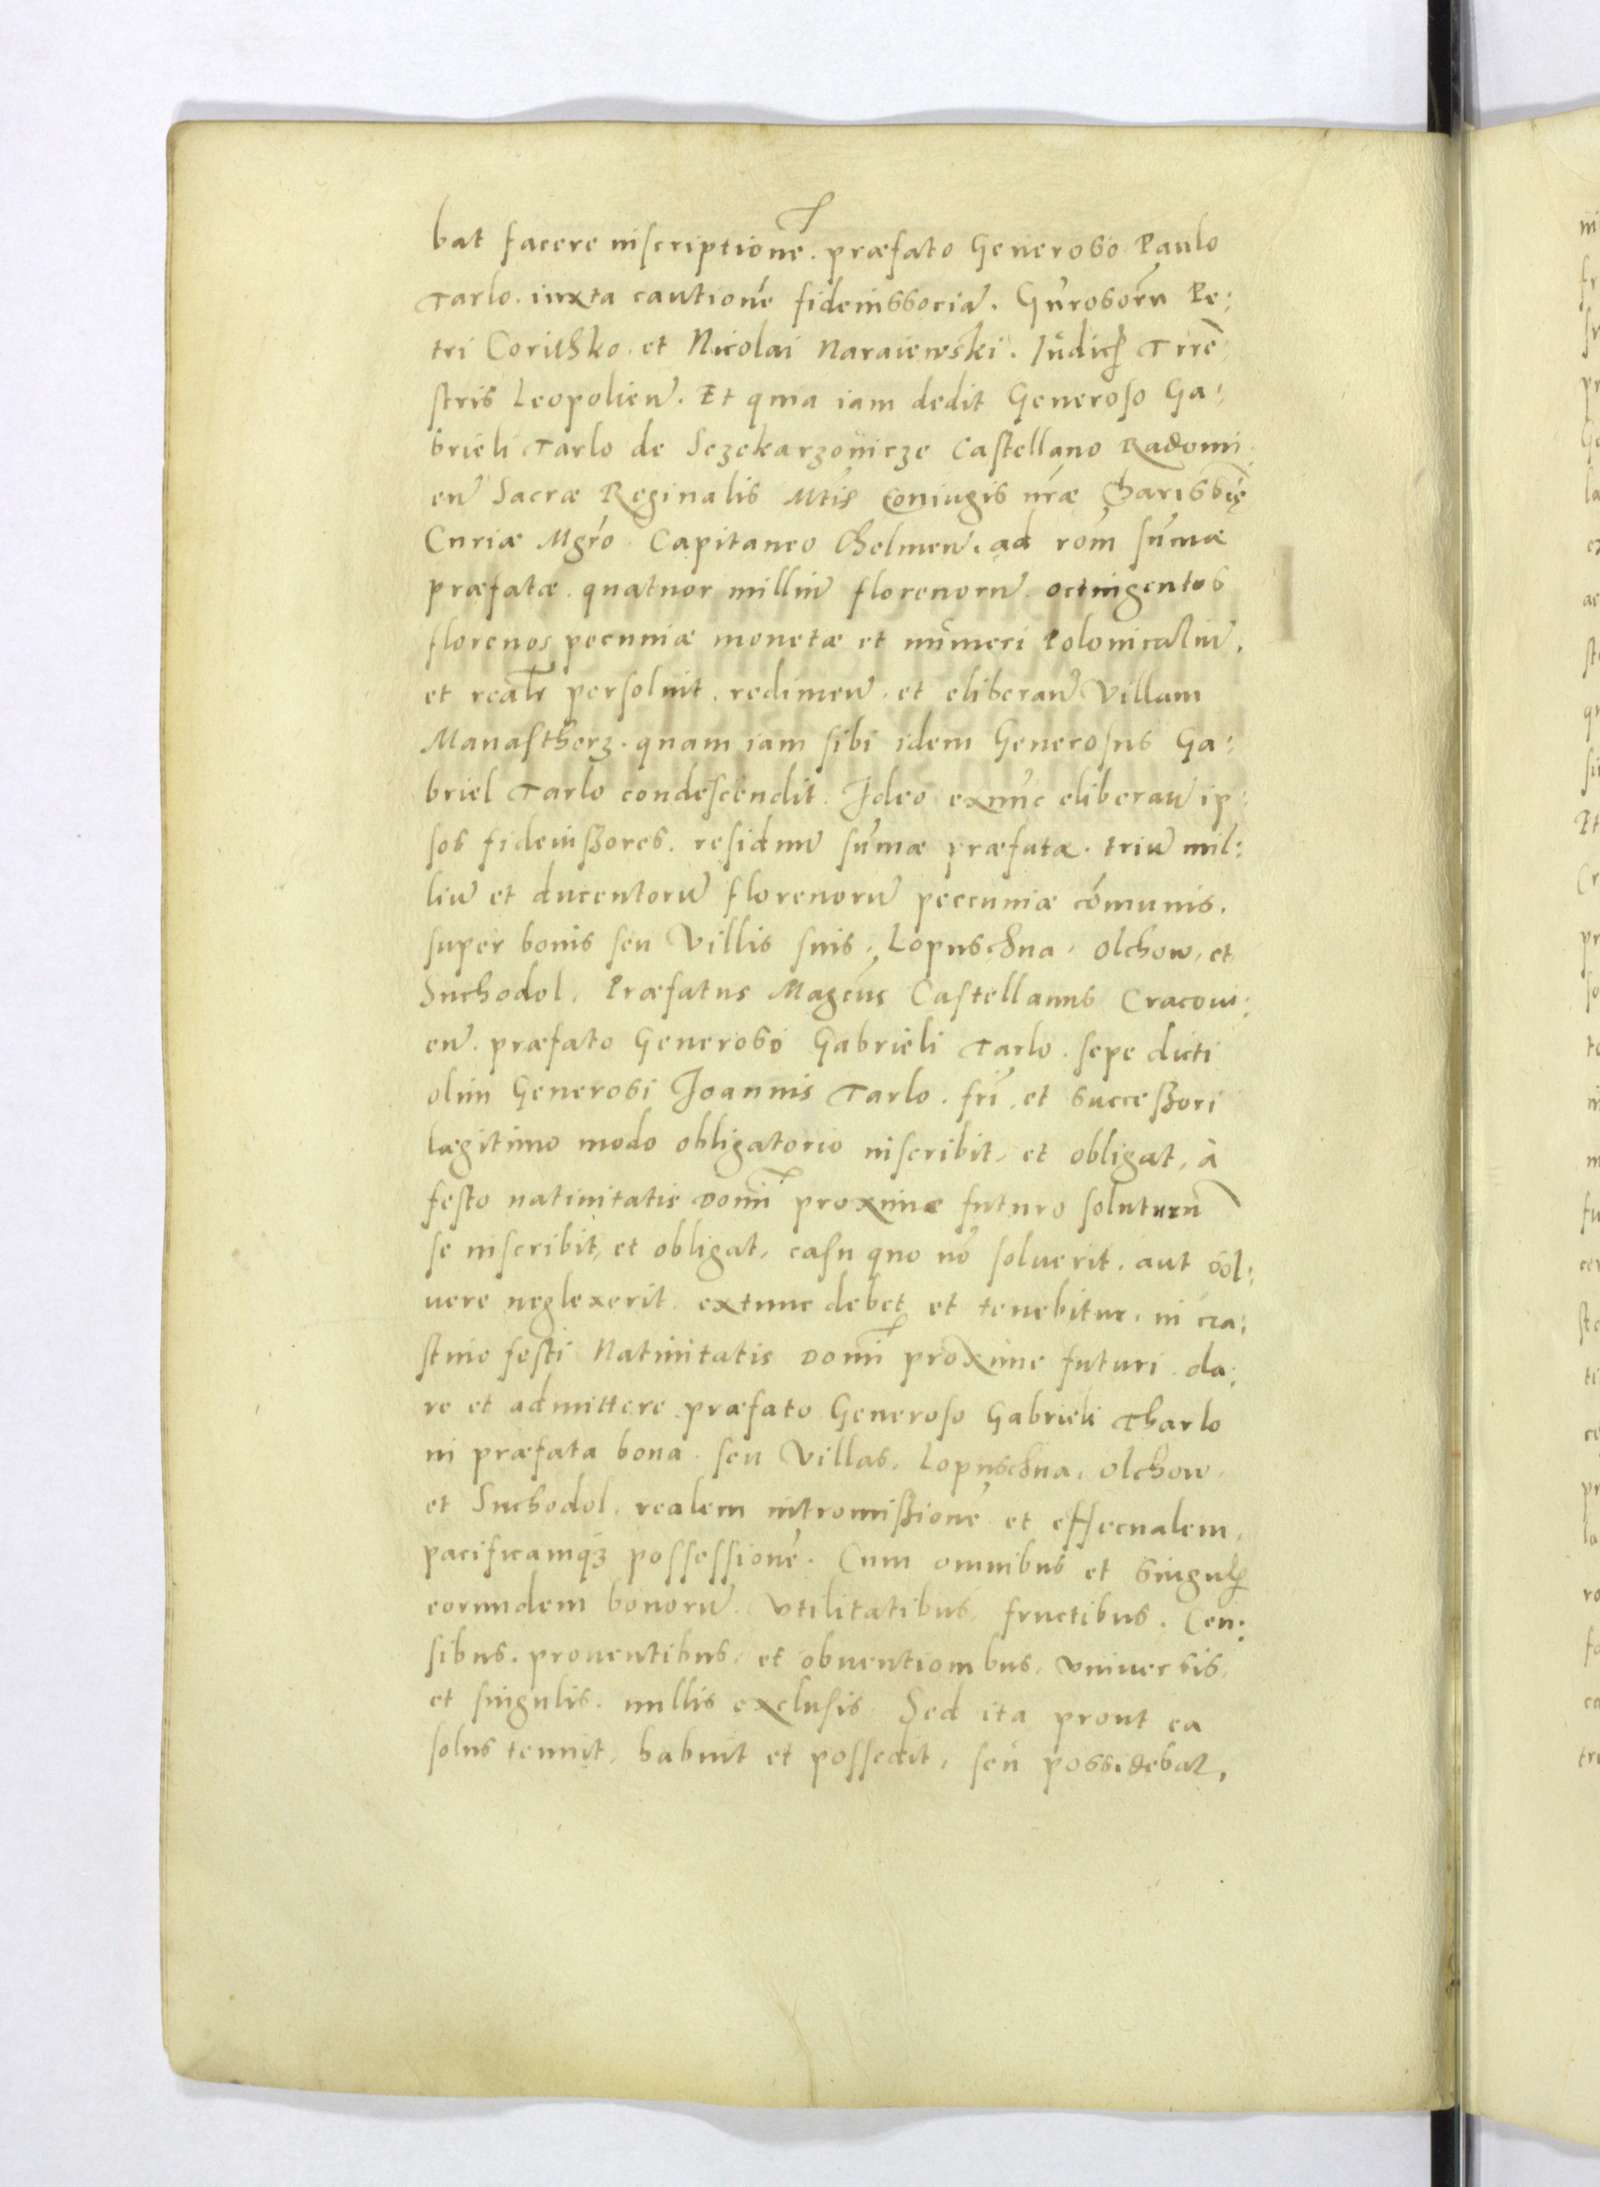 bat facere inscriptionẽ. præfato Generoso Paulo
Tarlo. iuxta cautionẽ fideiussoriã. Gnrosorũ Pe:
tri Corithko. et Nicolai Naraiewski. Iudicis Trrẽ
stris Leopolieñ. Et quia iam dedit Generoso Ga:
brieli Tarlo de Sczekarzowicze Castellano Radomi
eñ Sacræ Reginalis Mtis Coniugis nræ Charissię
Curiæ Mgro Capitaneo Chelmeñ. ad rõm sũmæ
præfatæ. quatuor milliũ florenorũ. octingentos
florenos pecuniæ monetæ et nũmeri Polonicaliũ.
et realr persoluit. redimeñ. et eliberañ Villam
Manastherz. quam iam sibi idem Generosus Ga:
briel Tarlo condescendit. Ideo exnũc eliberañ ip:
sos fideiussores. residuũ sũmæ præfatæ. triũ mil:
liũ et ducentorũ florenorũ peccuniæ cõmunis.
super bonis seu Villis suis. Lopuschna. Olchow. et
Suchodol. Præfatus Magcus Castellanus Cracoui:
eñ. præfato Generoso Gabrieli Tarlo. sepe dicti
olim Generosi Joannis Tarlo. fri. et successori
lægitimo modo obligatorio inscribit. et obligat. à
festo natiuitatis Domĩ proximæ futuro soluturũ
se inscribit, et obligat. casu quo nõ soluerit. aut sol:
uere neglexerit. extunc debet et tenebitur. in cra:
stino festi Natiuitatis Domĩ proxime futuri. da:
re et admittere præfato Generoso Gabrieli Tharlo
in præfata bona. seu Villas. Lopuschna. Olchow.
et Suchodol. realem intromissionẽ et effectualem.
pacificamq3 possessionẽ. Cum omnibus et Singulis
eorundem bonorũ. vtilitatibus fructibus. Cen:
sibus. prouentibus. et obuentionibus. vniuersis.
et singulis. nullis exclusis. Sed ita prout ea
solus tenuit. habuit et possedit. seu possidebat.